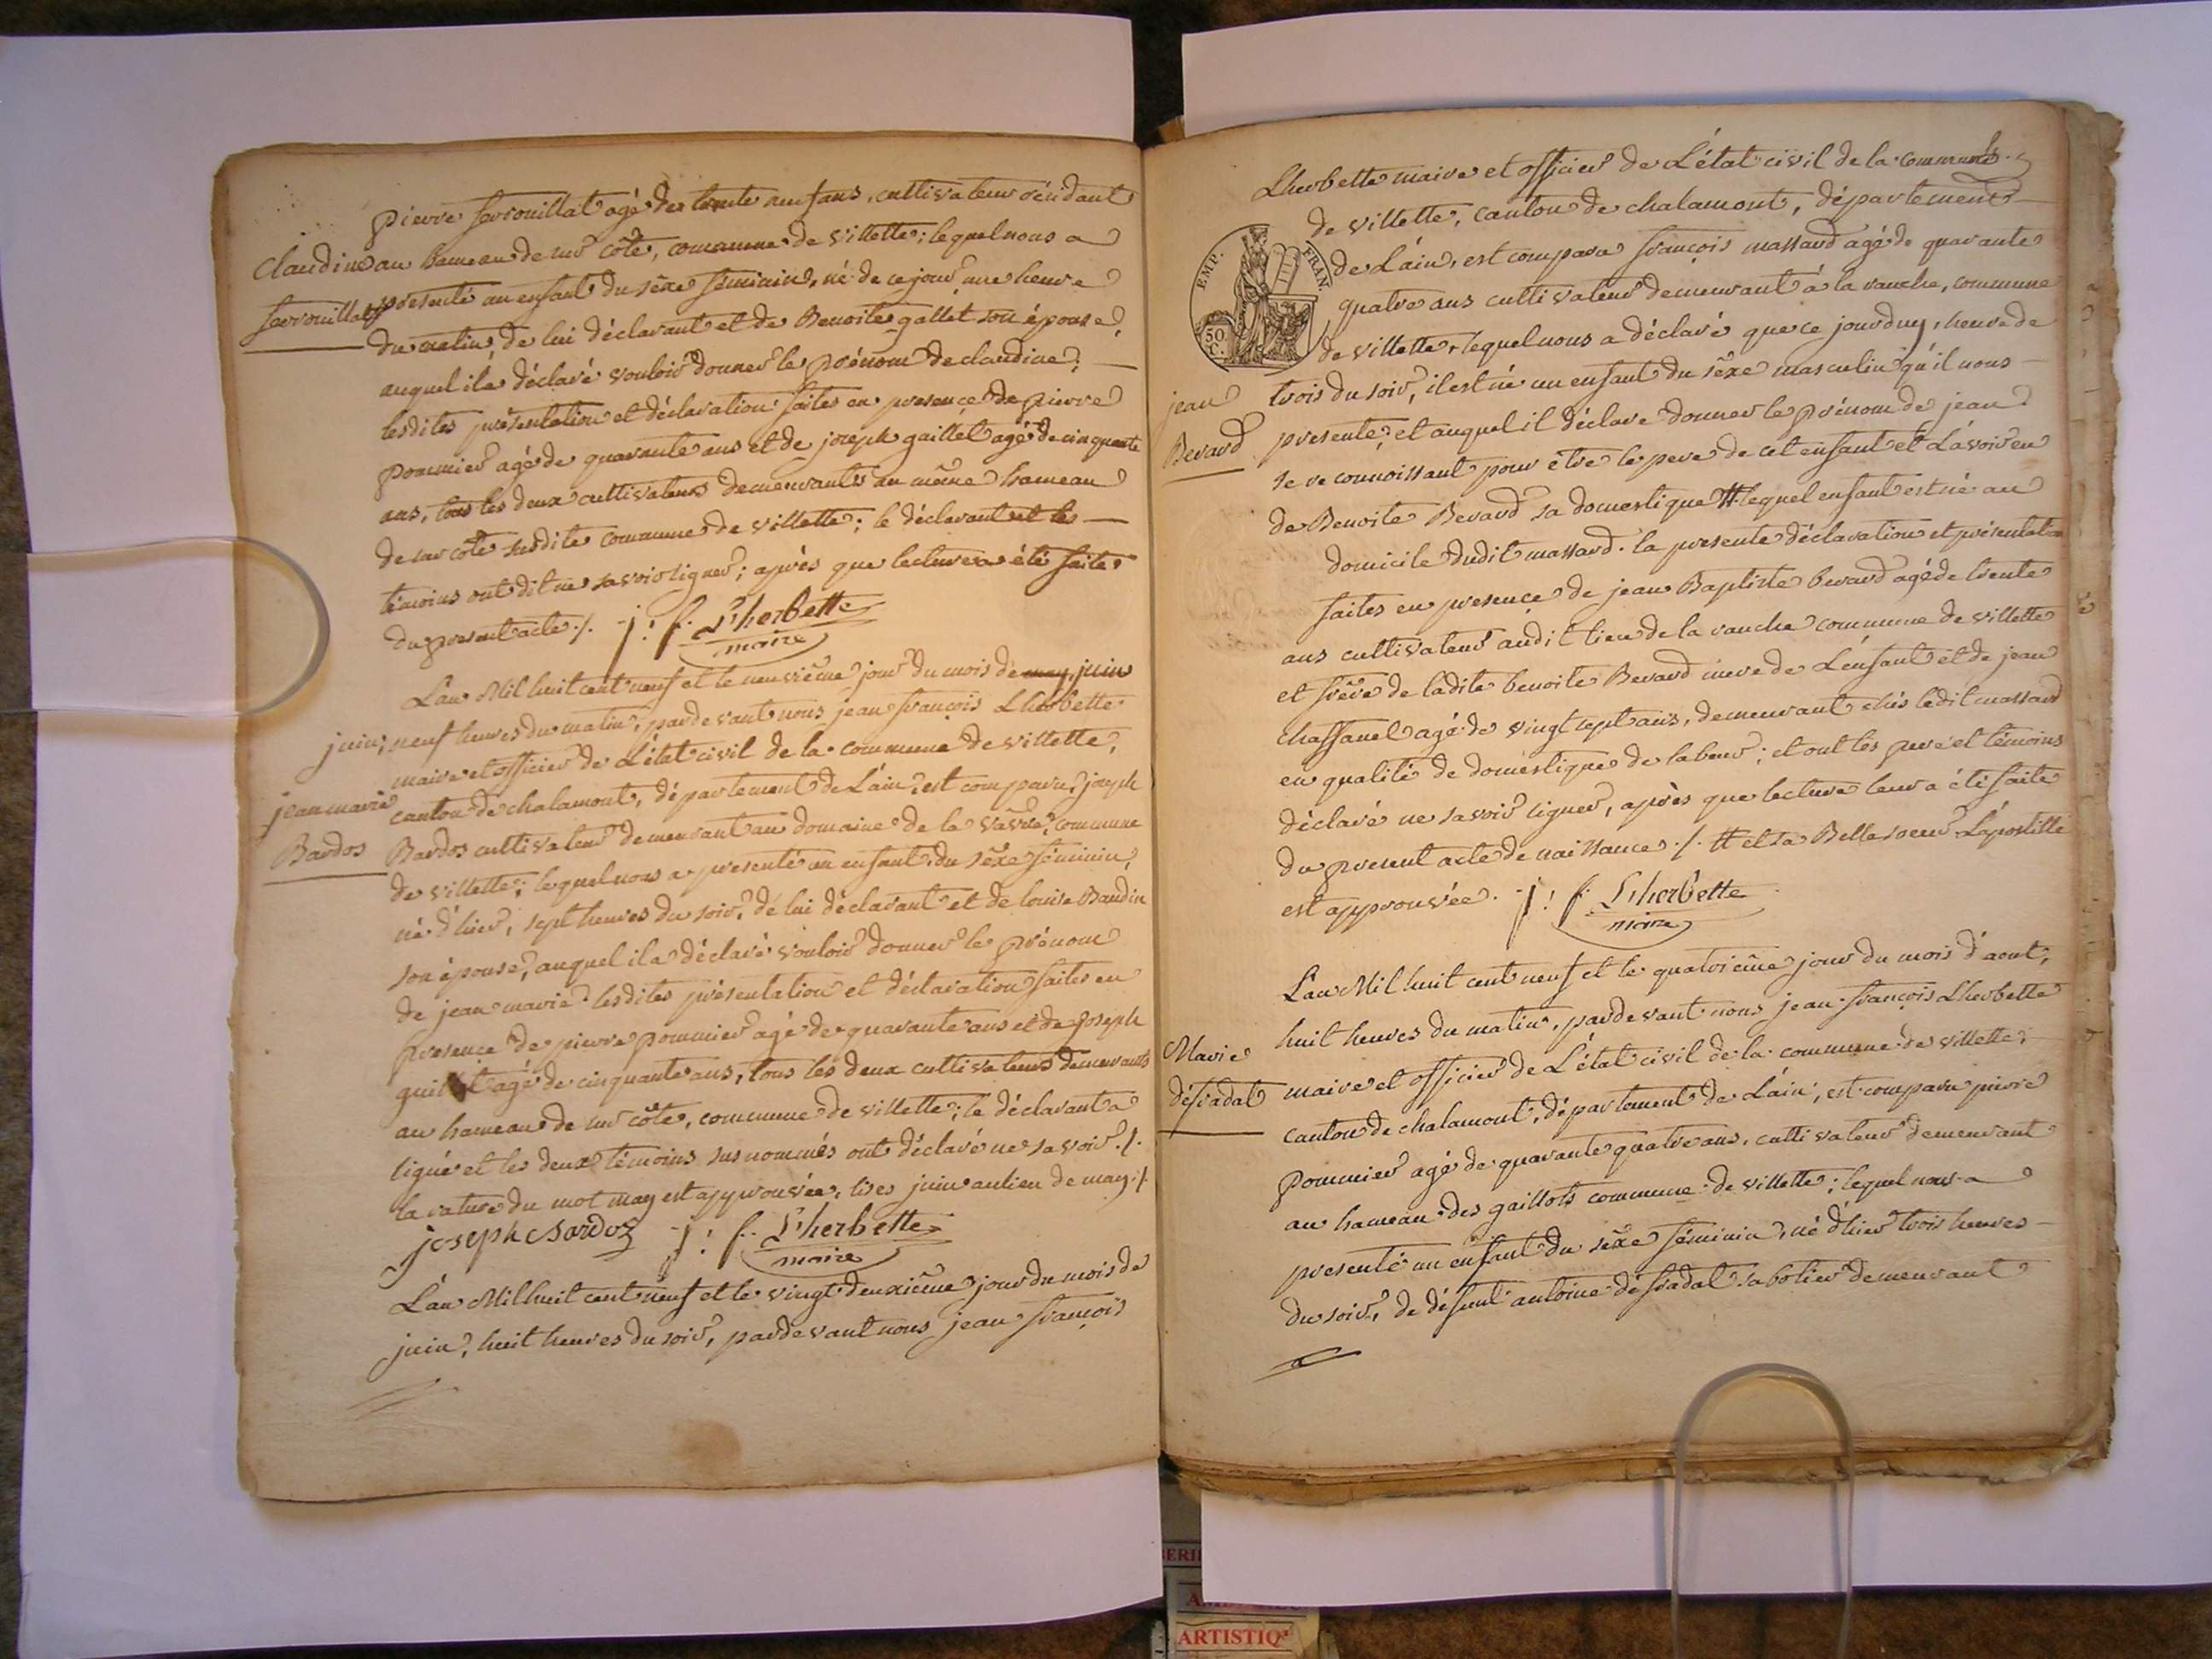 pierre ferrouillat agé de trente neuf ans, cultivateur résidant
Claudine
ferrouillat
au hameau de sur côte, commune de villette; lequel nous a
presenté un enfant du sèxe féminin, né de ce jour une heure
du matin, de lui déclarant et de Benoite gallet son épouse,
auquel il a déclaré vouloir donner le prénom de claudine;
lesdites présentation et déclaration faites en presence de pierre
pommier agé de quarante ans et de joseph gaillet agé de cinquante
ans, tous les deux cultivateurs demeurants au même hameau
de sur côte susdite commune de villette; le déclarant et les
témoins ont dit ne savoir signer; après que lecture a été faite
du present acte ./. j: f. Lherbette
maire
L'an Mil huit cent neuf et le neuvième jour du mois de may, juin
juin; neuf heures du matin, pardevant nous jean françois Lherbette
maire et officier de L'état civil de la commune de villette,
jean marie
Bardos
canton de chalamont, département de L'ain, est comparu joseph
Bardos cultivateur demeurant au domaine de la vavre, commune
de villette; lequel nous a presenté un enfant du sèxe féminin,
né d'hier, sept heures du soir, de lui déclarant et de louise Baudin
son épouse, auquel il a déclaré vouloir donner le prénom
de jean marie. lesdites présentation et déclaration faites en
presence de pierre pommier agé de quarante ans et de joseph
agé de cinquante ans, tous les deux cultivateurs demeurants
au hameau de sur côte, commune de villette; le déclarant a
signé et les deux témoins susnommés ont déclaré ne savoir ./.
la rature du mot may est approuvée, lises juin au lieu de may ./.
joseph Bardoz j: f. Lherbette
maire
L'an Mil huit cent neuf et le vingt deuxième jour du mois de
juin, huit heures du soir, pardevant nous jean françois
Lherbette maire et officier de L'état civil de la commune
de villette, canton de chalamont, département
EMP. FRAN.
50 C.
de L'ain, est comparu françois massard agé de quarante
quatre ans cultivateur demeurant à la ranche, commune
de villette, lequel nous a déclaré que ce jourduy, heure de
jean
Berard
trois du soir, il est né un enfant du sèxe masculin qu'il nous
presente, et auquel il déclare donner le prénom de jean
se reconnoissant pour être le pere de cet enfant et L'avoir eu
de Benoite Berard sa domestique # lequel enfant est né au
domicile dudit massard. la presente déclaration et présentation
faites en presence de jean Baptiste berard agé de trente
ans cultivateur audit lieu de la ranche commune de villette
et frère de ladite benoite Berard mere de L'enfant et de jean
chassanel agé de vingt sept ans, demeurant chés ledit massard
en qualité de domestique de labeur; et ont les pere et témoins
déclaré ne savoir signer, après que lecture leur a été faite
du present acte de naissance ./. # et sa Belle soeur L'apostille
est approuvée. j: f. Lherbette
maire
L'an Mil huit cent neuf et le quatrième jour du mois d'aout,
huit heures du matin, pardevant nous jean françois Lherbette
Marie
désfradat
maire et officier de L'état civil de la commune de villette,
canton de chalamont, département de L'ain; est comparu pierre
pommier agé de quarante quatre ans, cultivateur demeurant
au hameau des gaillots commune de villette; lequel nous a
presenté un enfant du sèxe féminin, né d'hier trois heures
du soir, de défunt antoine désfradat sabotier demeurant
ARTISTIQ